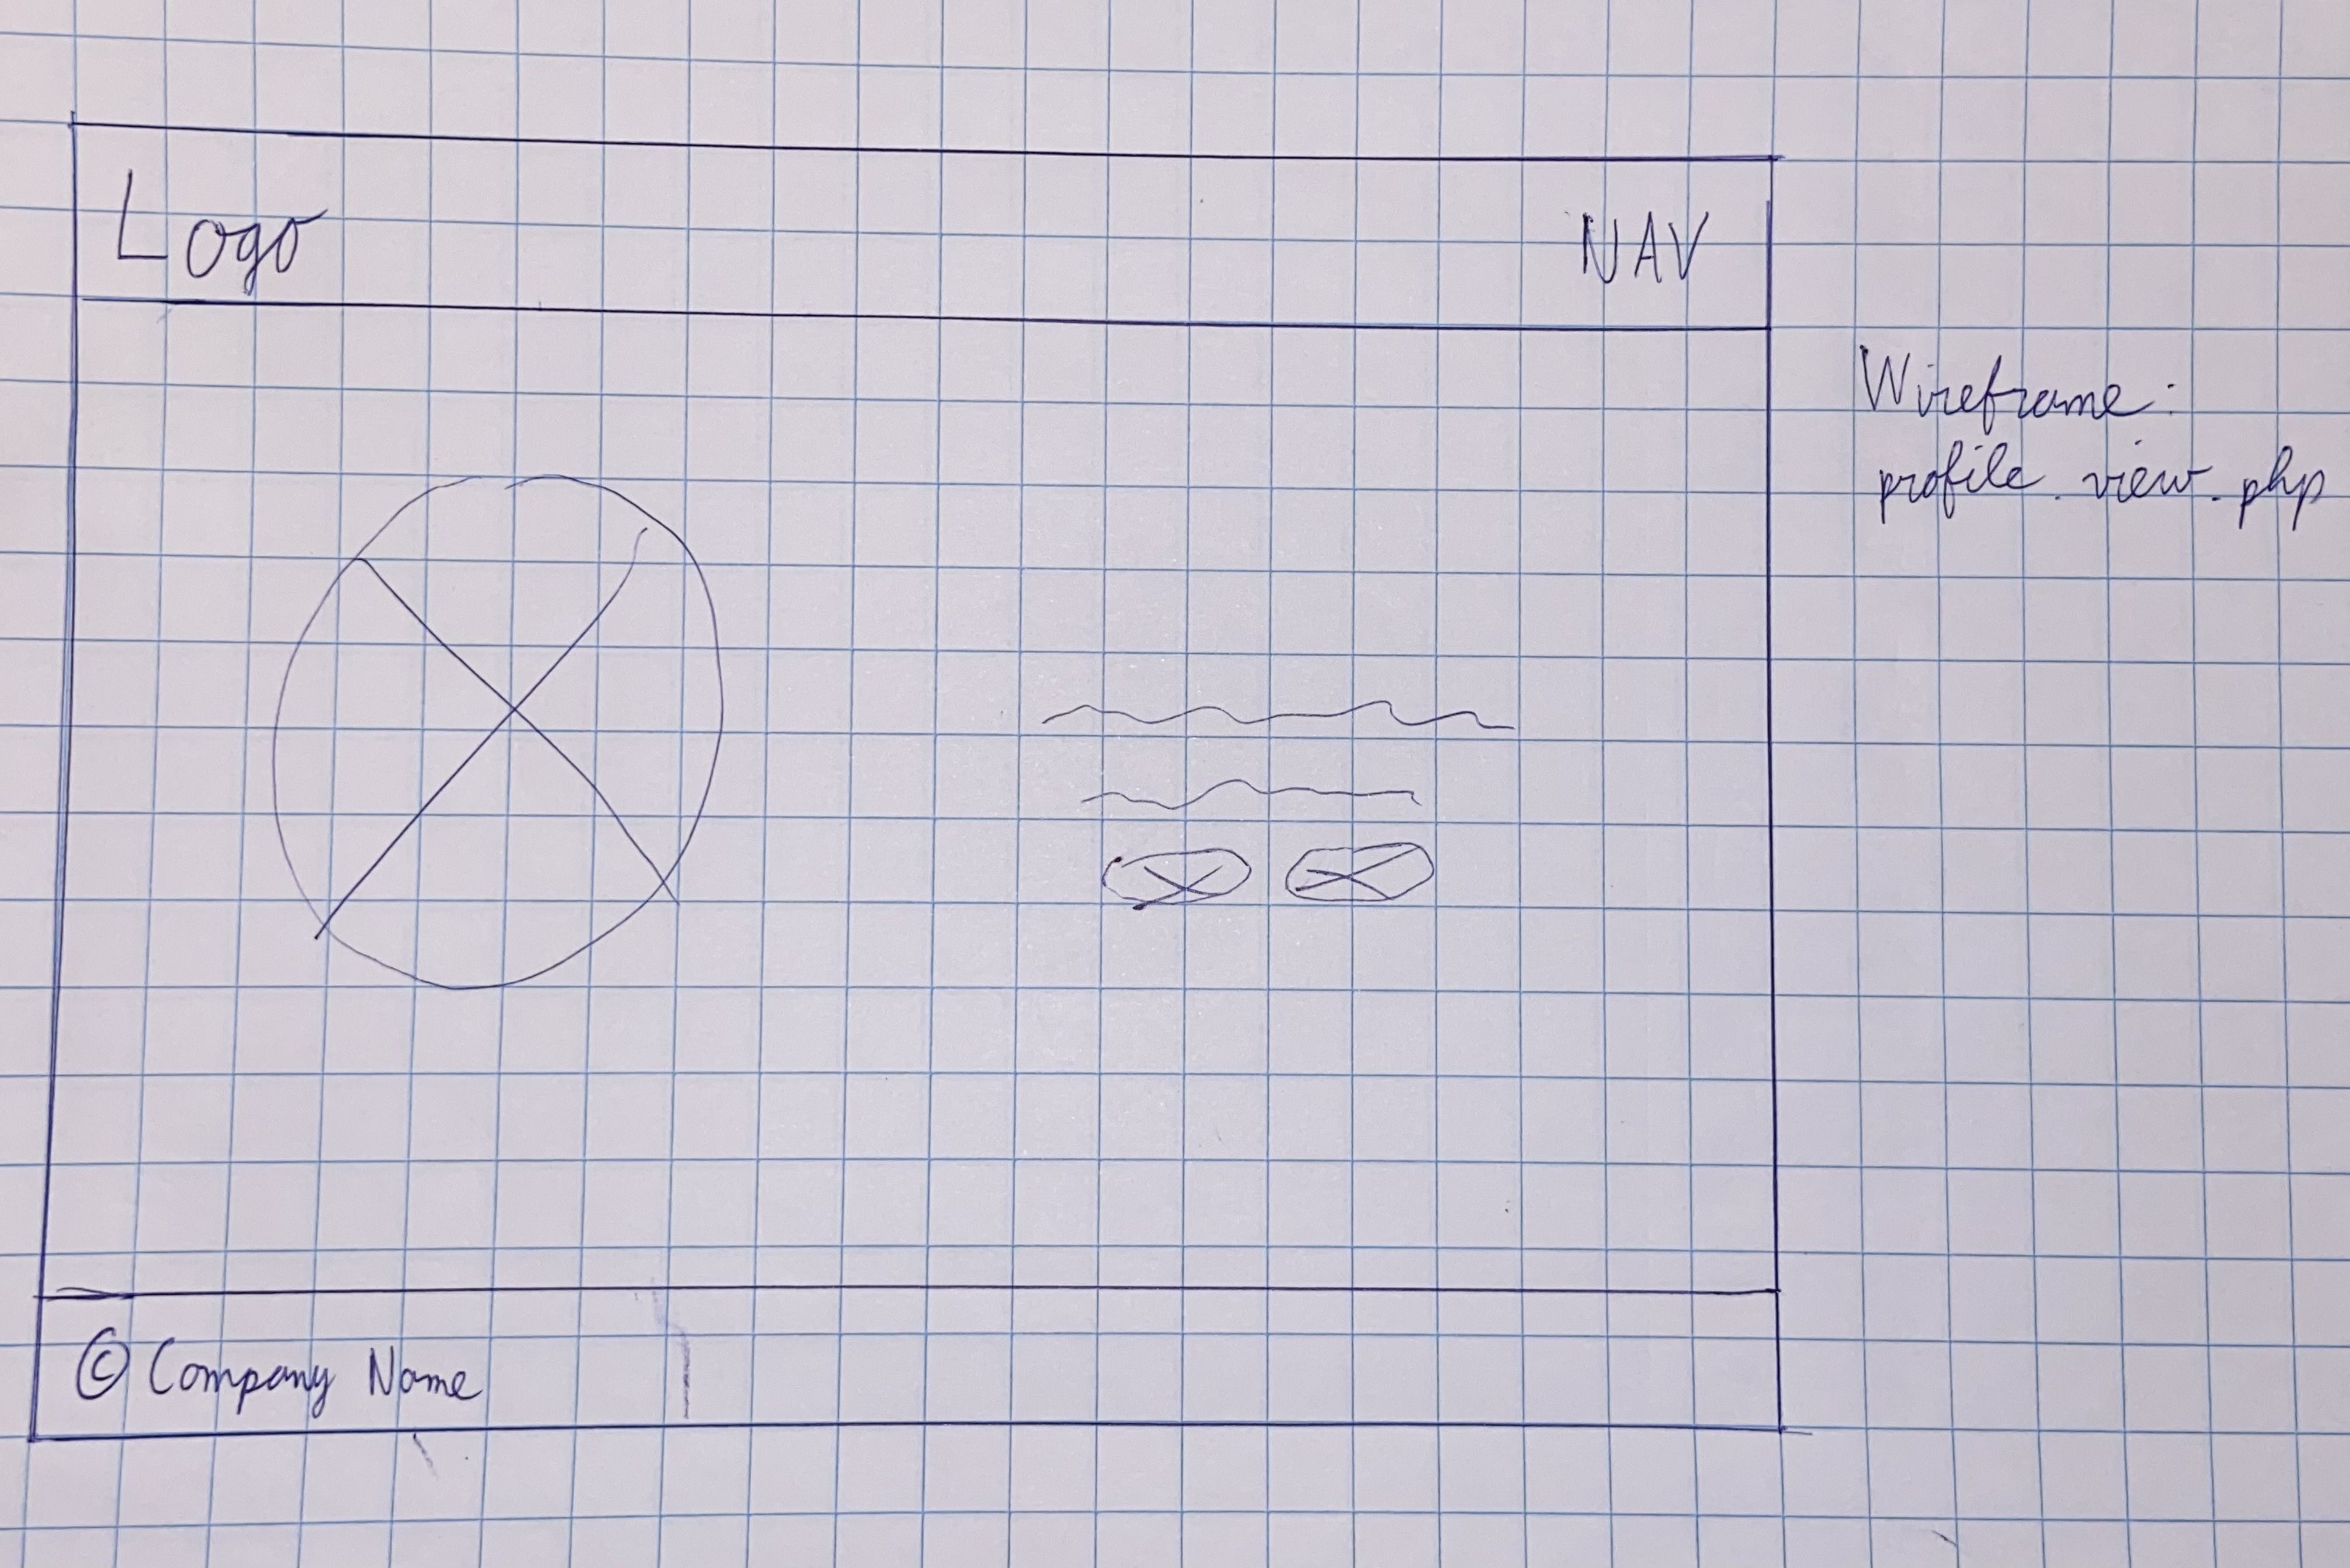 Logo
NAV
Wireframe:
profile.view.php
© Company Name